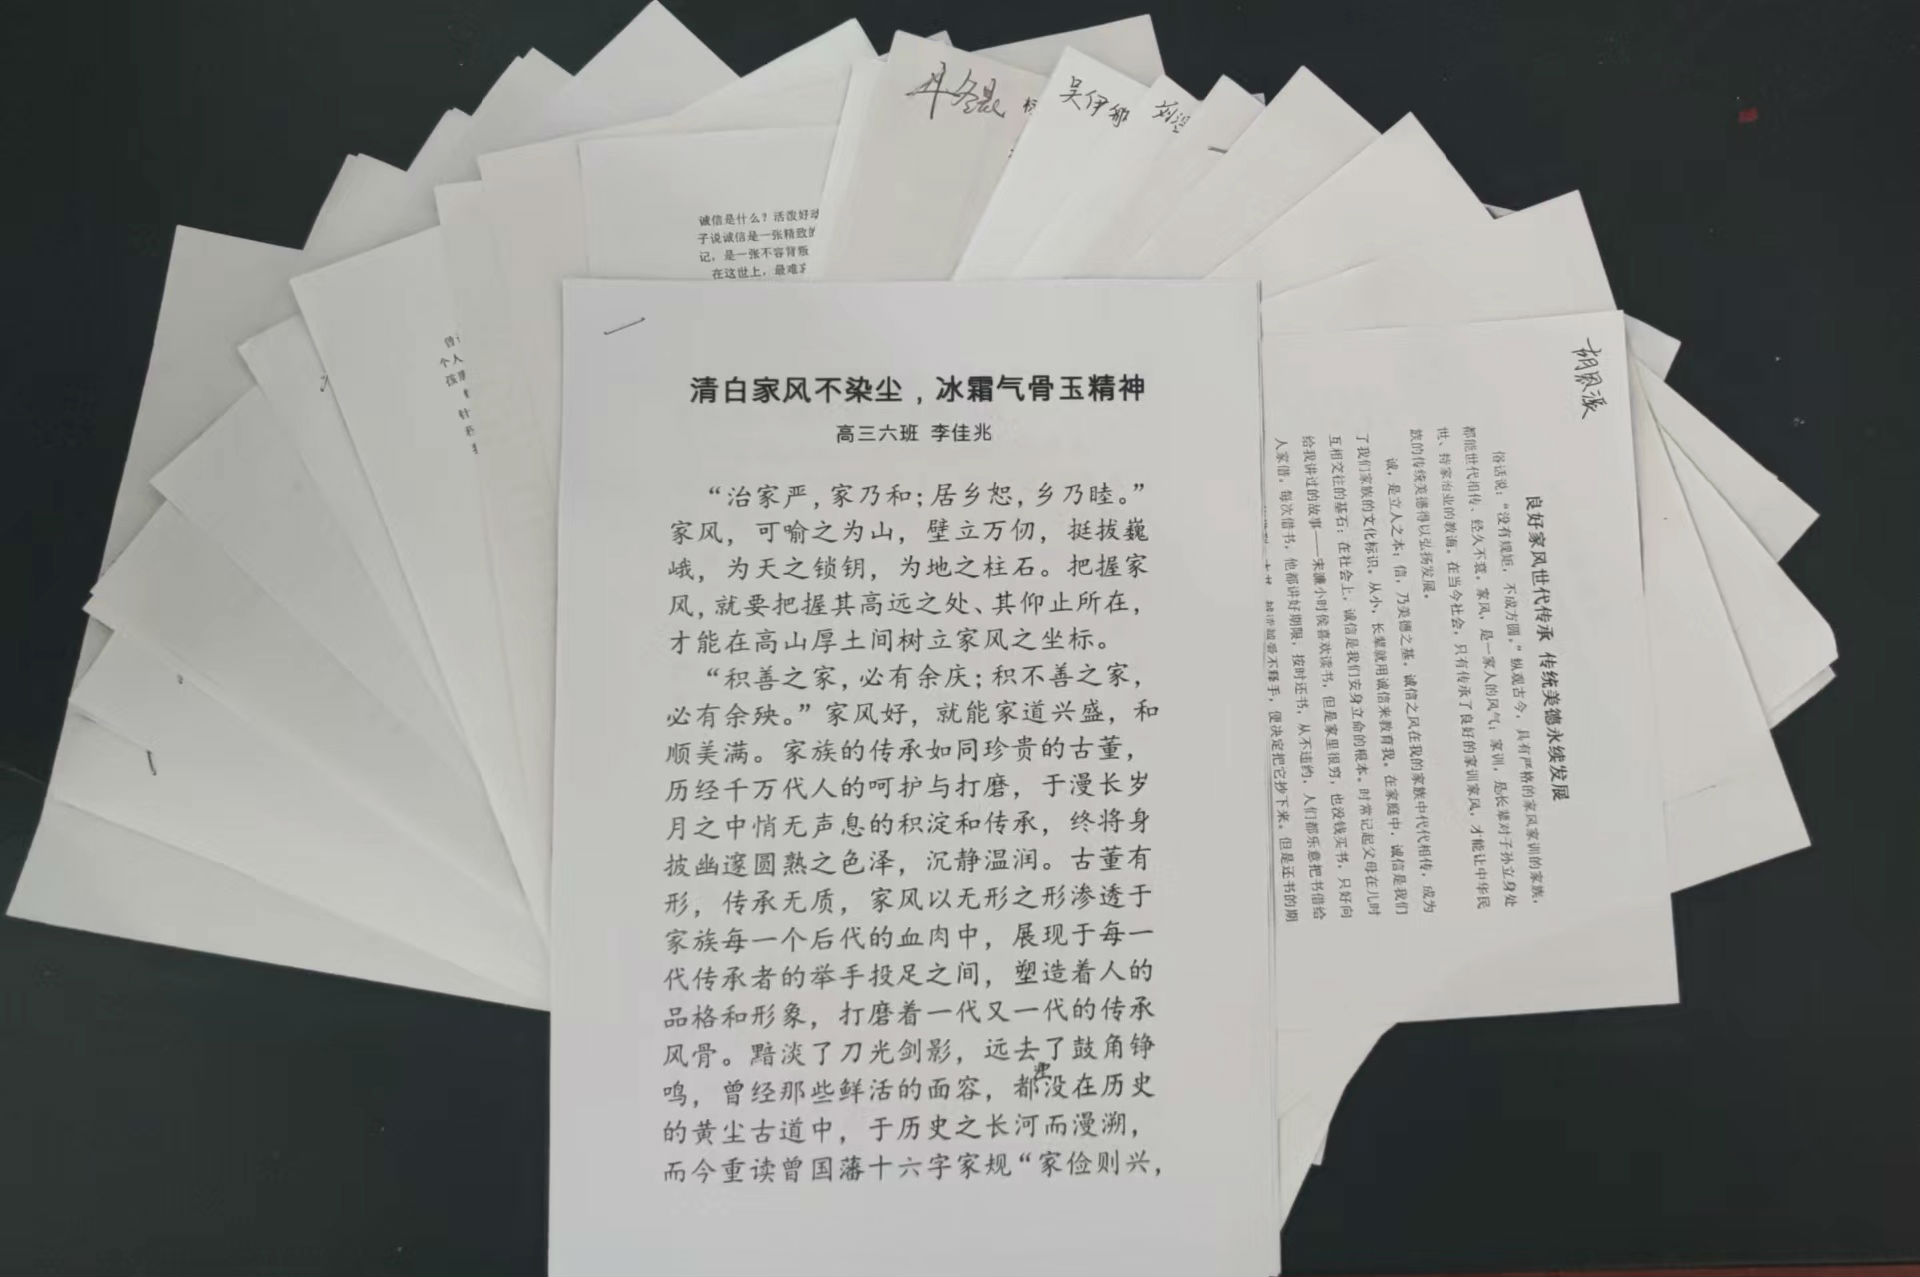 清白家风不染尘，冰霜气骨玉精神
高三六班 李佳兆
“治家严，家乃和；居乡恕，乡乃睦。”
家风，可喻之为山，壁立万仞，挺拔巍
峨，为天之锁钥，为地之柱石。把握家
风，就要把握其高远之处、其仰止所在，
才能在高山厚土间树立家风之坐标。
“积善之家，必有余庆；积不善之家，
必有余殃。”家风好，就能家道兴盛，和
顺美满。家族的传承如同珍贵的古董，
历经千万代人的呵护与打磨，于漫长岁
月之中悄无声息的积淀和传承，终将身
披幽邃圆熟之色泽，沉静温润。古董有
形，传承无质，家风以无形之形渗透于
家族每一个后代的血肉中，展现于每一
代传承者的举手投足之间，塑造着人的
品格和形象，打磨着一代又一代的传承
风骨。黯淡了刀光剑影，远去了鼓角铮
鸣，曾经那些鲜活的面容，都没在历史
的黄尘古道中，于历史之长河而漫溯，
而今重读曾国藩十六字家规“家俭则兴，
诚信是什么？活泼好动
子说诚信是一张精致的
记，是一张不容背叛
在这世上，最难
个人
孩
针
吴伊娜
良好家风世代传承 传统美德永续发展
俗话说：“没有规矩，不成方圆。”纵观古今，具有严格的家风家训的家族，
都能世代相传、经久不衰。家风，是一家人的风气；家训，是长辈对子孙立身处
世、持家治业的教诲。在当今社会，只有传承了良好的家训家风，才能让中华民
族的传统美德得以弘扬发展。
诚，是立人之本；信，乃美德之基。诚信之风在我的家族中代代相传，成为
了我们家族的文化标识。从小，长辈就用诚信来教育我。在家庭中，诚信是我们
互相交往的基石；在社会上，诚信是我们安身立命的根本。时常记起父母在儿时
给我讲过的故事——宋濂小时候喜欢读书，但是家里很穷，也没钱买书，只好向
人家借，每次借书，他都讲好期限，按时还书，从不违约，人们都乐意把书借给
爱不释手，便决定把它抄下来。但是还书的期